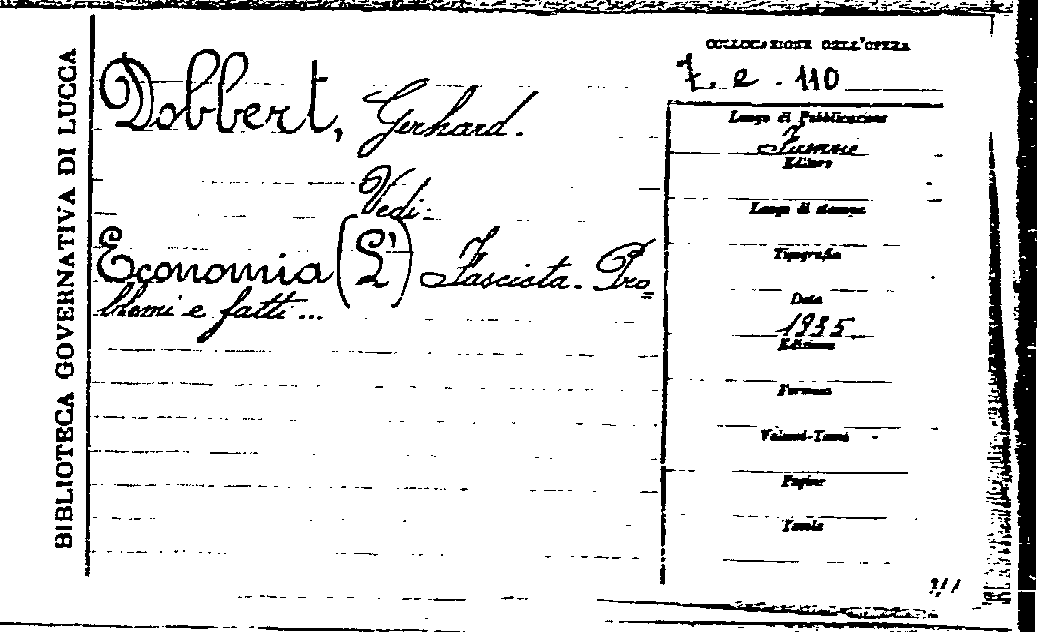 BIBLIOTECA GOVERNATIVA DI LUCCA
Dobbert, Gerhard.
Vedi:
Economia (L') Fascista. Pro
blemi e fatti...
COLLOCAZIONE DELL'OPERA
7. e. 110
Luogo di Pubblicazione
Editore
Luogo di stampa
Tipografia
Data
1935
Edizione
Formato
Volumi-Tomi
Pagine
Tavole